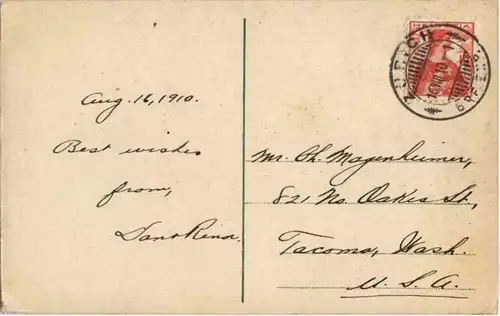 Aug. 16, 1910.
Best wishes
from,
ZÜRICH
16.VIII.10
Mr. Ch. Magenheimer,
821 No. Oakes St.,
Tacoma, Wash.
U. S. A.